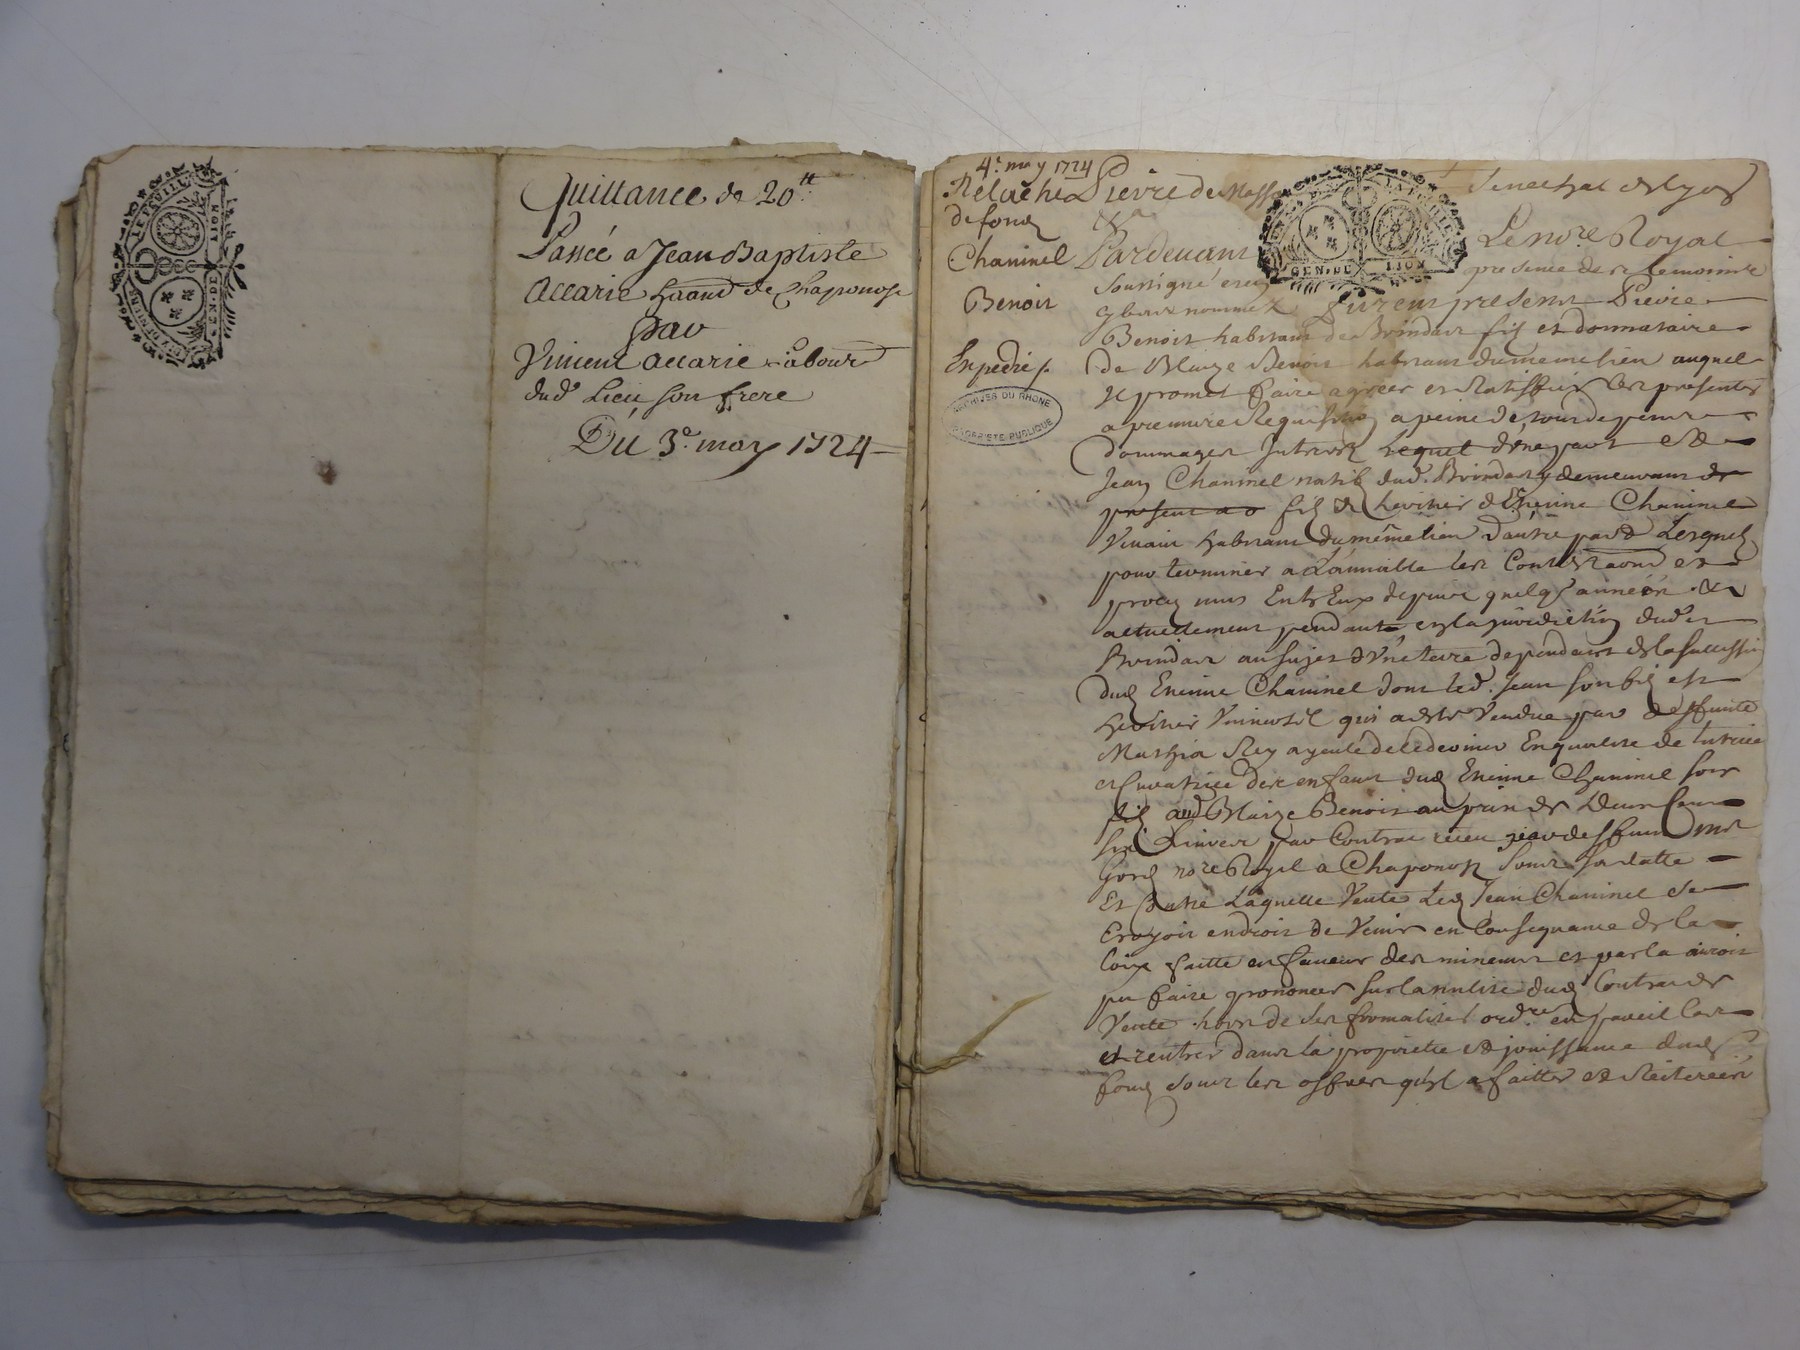 Quittance de 20ᵗᵗ
Passée a Jean Baptiste
Accarie de Chaponost
Par
Vincent Accarie Labour
dud. Lieu son frere
Du 3ᵉ may 1724
4ᵉ may 1724
Relaché
de fond
Chaninel
Benoit
Expedié
ARCHIVES DU RHONE
PROPRIETE PUBLIQUE
Pierre de Senechal de Lyon
&ᵃ
Pardevant Le noʳᵉ Royal
Soussigné et en presence des temoins
cy bas nommez furent presents Pierre
Benoit habitant de Brindas fils et donnataire
de Blaize Benoit habitant du meme lieu auquel
il promet faire agréer et ratiffier les presentes
a premiere Requisition a peine de tous depens
dommages Interest Lequel d'une part Et
Jean Chaninel natif dud. Brindas demeurant de
present a fils & heritier d'Etienne Chaninel
Vivant habitant du même lieu d'autre part Lesquels
pour terminer a L'aimable les Contestaons et
proces mus Entr Eux depuis quelqs années &
actuellement pendants en la juridiction dud.
Brindas au sujet d'Une terre dependant de la succession
dud Etienne Chaninel dont led. Jean son fils est
heritier Universel qui a esté Vendue par deffunte
Mathia Rey ayeule de ce dernier En qualité de tutrice
et Curatrice des enfans dud Etienne Chaninel son
fils aud Blaize Benoit au prix de Deux Cens
Livres par Contrat receu par deffunt Mʳ
noʳᵉ Royal a Chaponost Sous sa datte
Et Contre Laquelle Vente Led Jean Chaninel se
Croyoit en droit de Venir en Consequance de la
Loix faitte en faveur des mineurs et par la auroit
pu faire prononcer sur la nulité dud Contrat de
Vente hors de ses formalités ordʳᵉˢ en pareil Cas
et rentrer dans la proprieté et jouissance dud
fond sous les offres qu'il a faitte et Reiterées